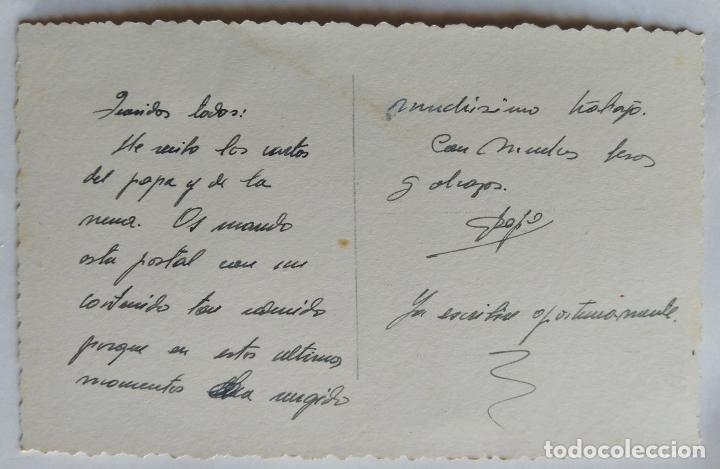 Queridos todos:
He recibo las cartas
del papa y de la
nena. Os mando
esta postal con un
contenido tan reducido
porque en estos ultimos
momentos ha surgido
muchisimo trabajo.
Con Muchos besos
y abrazos.
Ya escribire oportunamente.
todocoleccion.net